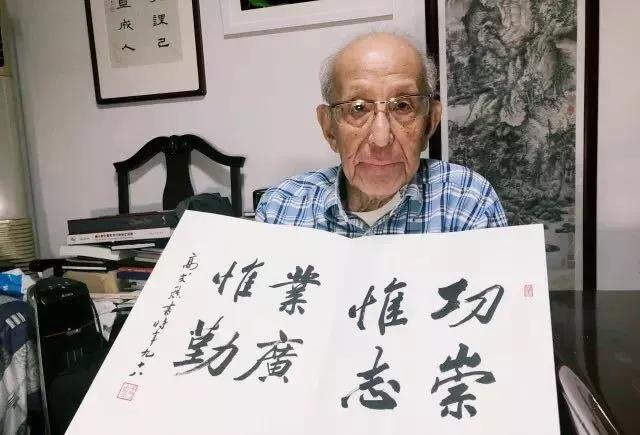 課己
成人
功崇
惟志
業廣
惟勤
高式熊書時年九十八